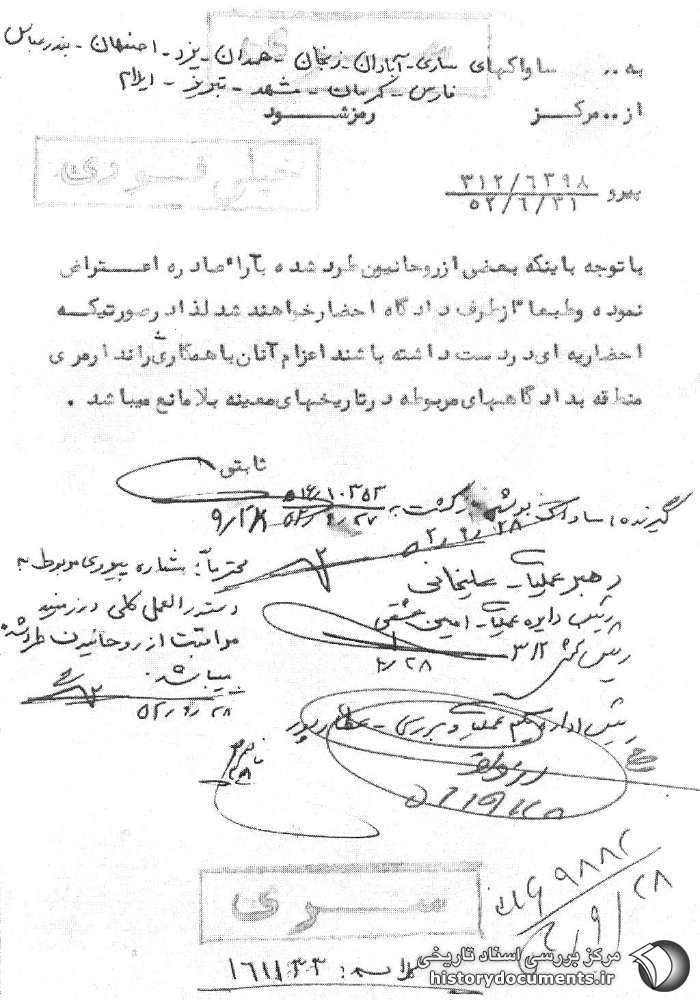 سری
به .. ساواکهای ساری - آبادان - زنجان - همدان - یزد - اصفهان - بندرعباس
فارس - کرمان - مشهد - تبریز - ایلام
از .. مرکز رمز شود
خیلی فوری
پیرو ۳۱۲/۶۳۹۸
۵۲/۶/۳۱
با توجه باینکه بعضی از روحانیون طرد شده بآراء صادره اعتراض
نموده و طبعا" از طرف دادگاه احضار خواهند شد لذا در صورتیکه
احضاریه ای در دست داشته باشند اعزام آنان با همکاری ژاندارمری
منطقه بدادگاههای مربوطه در تاریخهای معینه بلامانع میباشد .
ثابتی
۹/۲۸
گیرنده: ساواک
۵۲/۹/۲۸
رهبر عملیات - سلیمانی
رئیس دایره عملیات - امین عشقی
رئیس بخش ۳۱۲
۹/۲۸
رئیس اداره یکم عملیات و بررسی - عطارپور
محترماً: شماره پیروی مربوط به
دستورالعمل کلی در زمینه
مراقبت از روحانیون طرد شده
میباشد.
۵۲/۹/۲۸
سری
مرکز بررسی اسناد تاریخی
historydocuments.ir